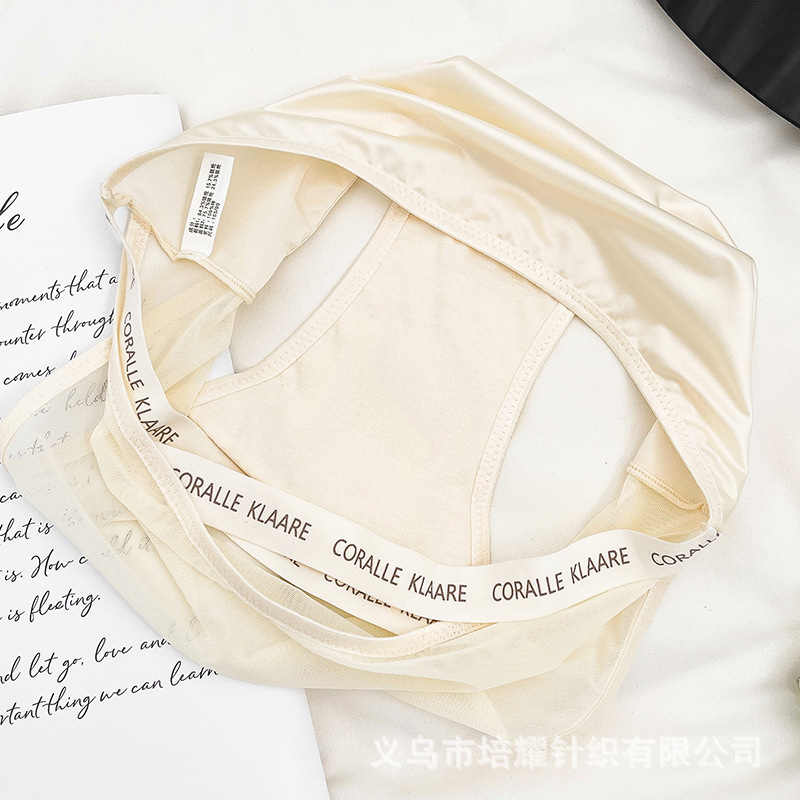 le
moments that a
ounter through
comes
held
that is
is. How c
is fleeting.
nd let go, love and
rtant thing we can learn
CORALLE KLAARE
CORALLE KLAARE
CORALLE KLAARE
CORALLE KLAARE
CORALL
CORALLE KLAARE
义乌市培耀针织有限公司